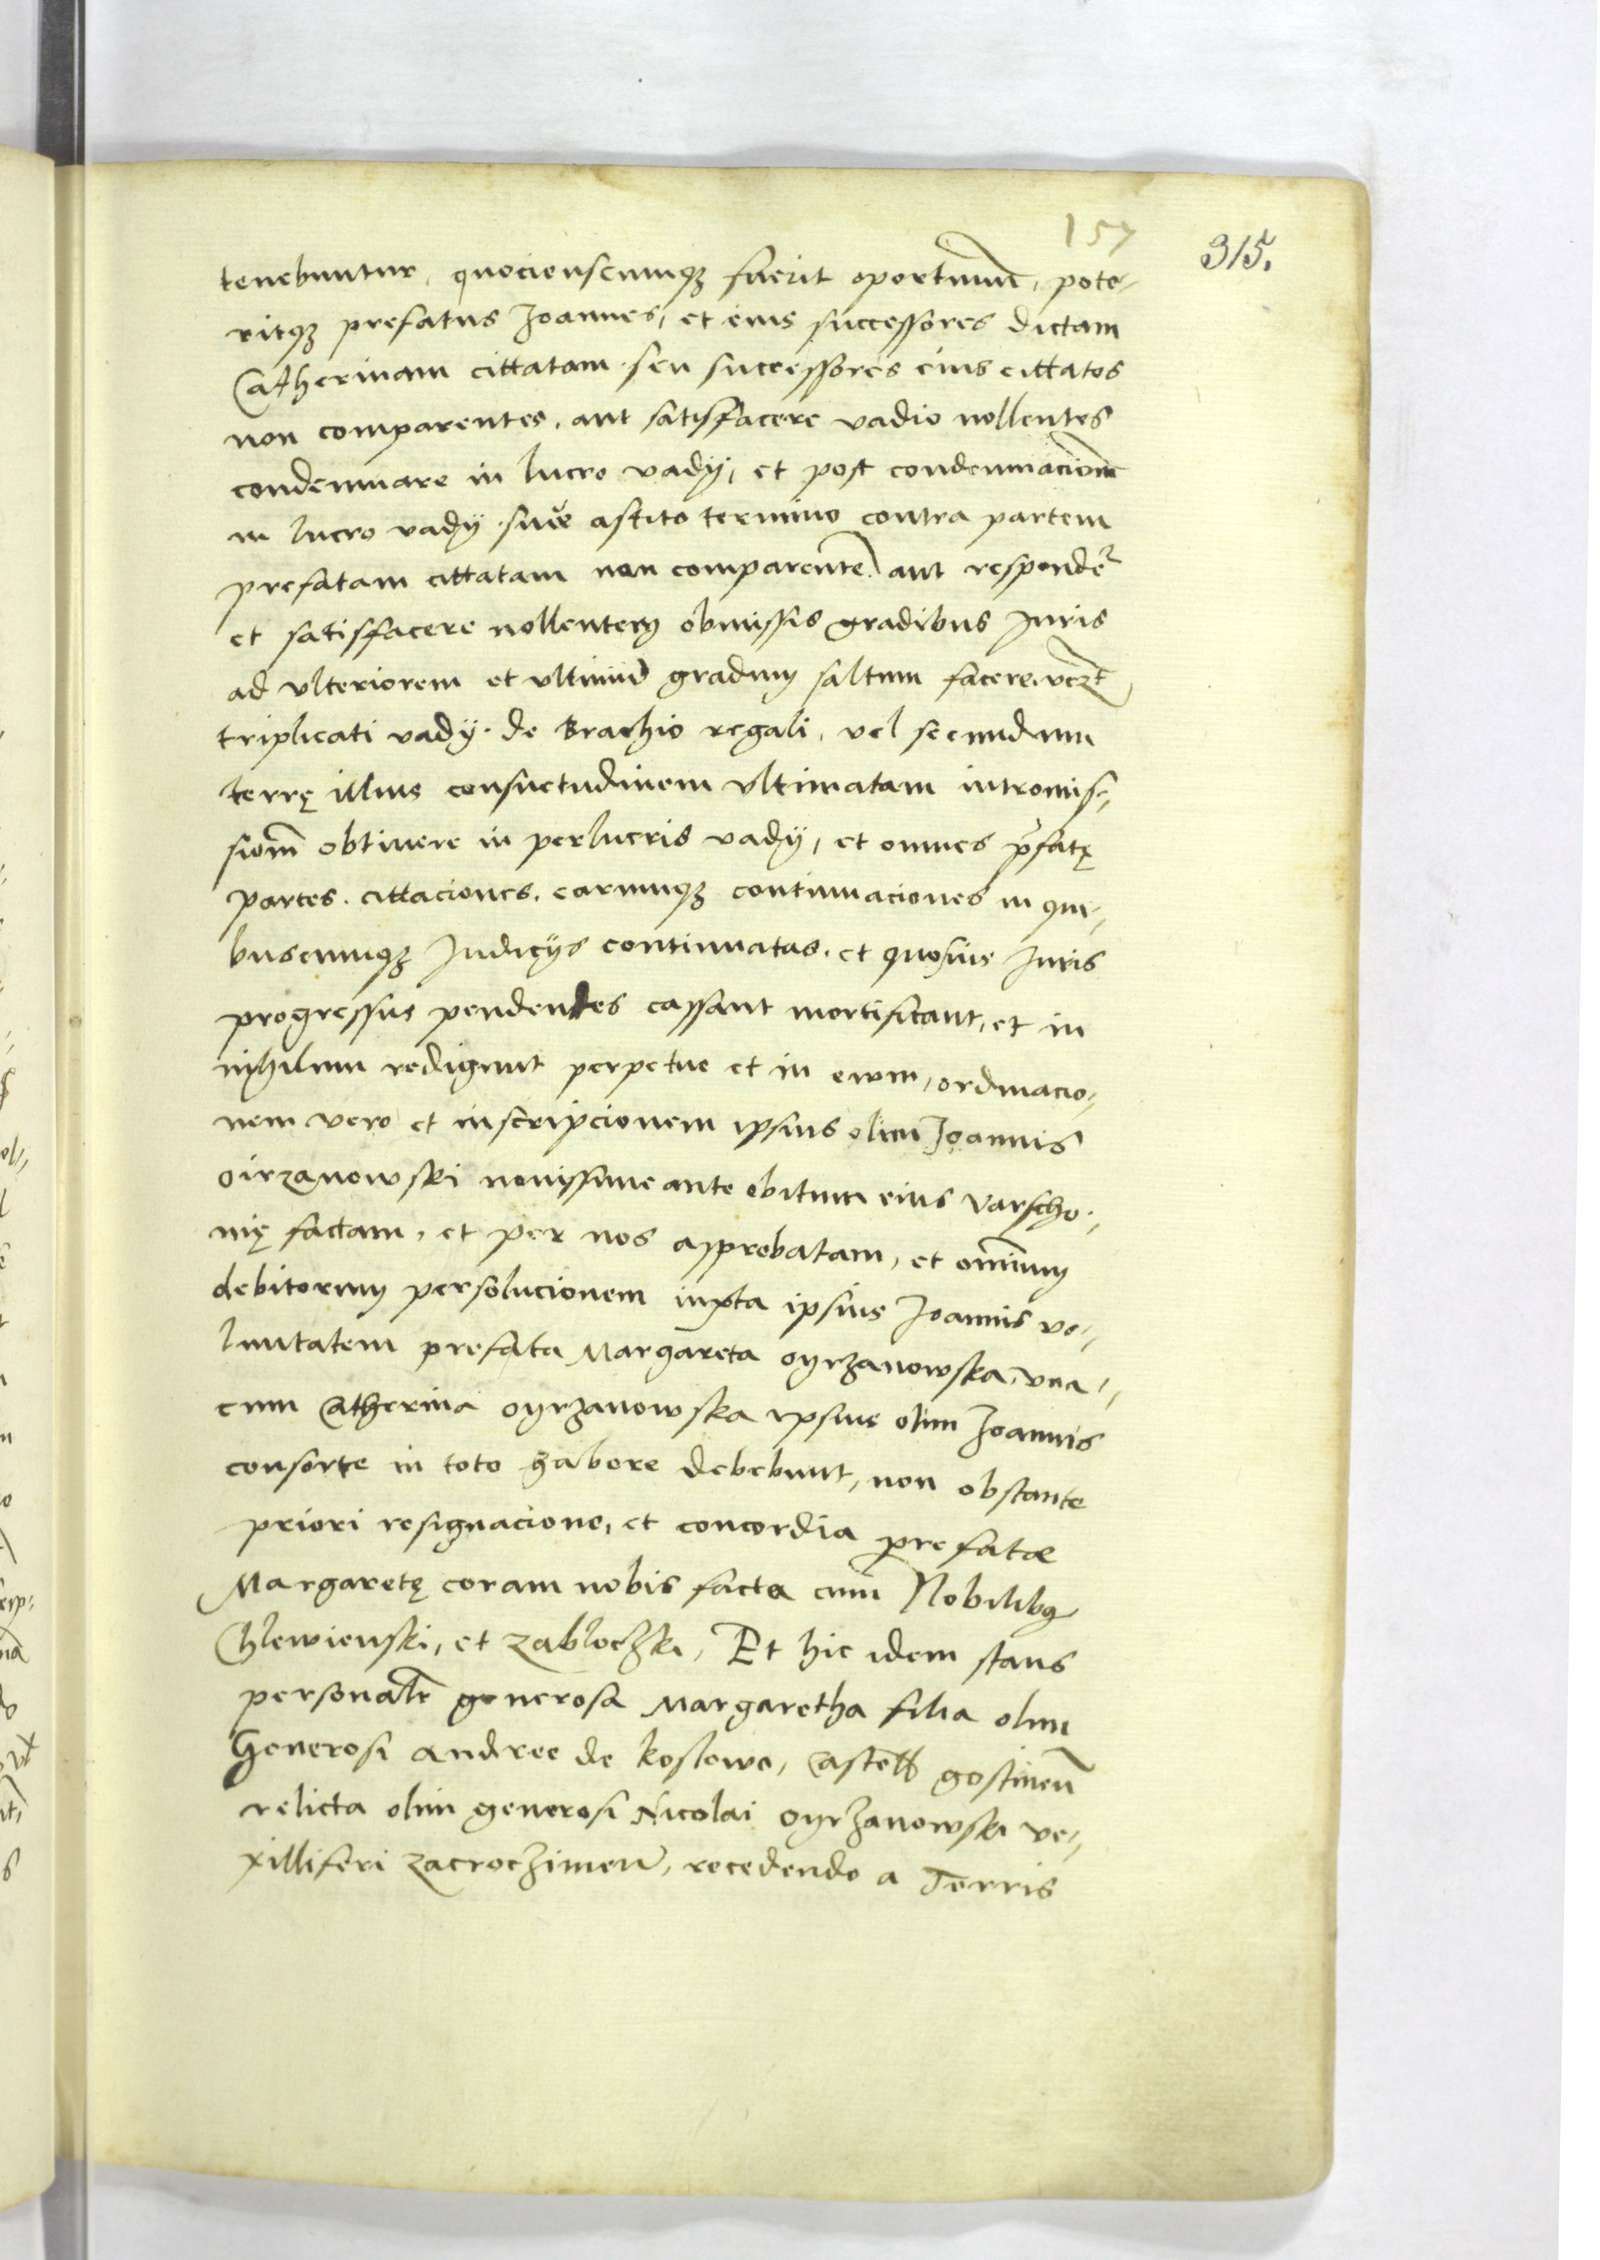 157
315.
tenebuntur, quocienscumqȝ fuerit oportunū, pote-
ritqȝ prefatus Joannes, et eius successores dictam
Catherinam cittatam seu successores eius cittatos
non comparentes, aut satisfacere vadio nollentes
condemnare in lucro vadÿ, et post condemnacionē
in lucro vadÿ suæ astito termino contra partem
prefatam cittatam non comparentē aut respondēr
et satisfacere nollentem obmissis gradibus Juris
ad vlteriorem et vltimū gradum saltum facere, vcȝt
triplicati vadÿ de Brachio regali, vel secundum
terrę illius consuetudinem vltimatam intromis-
sionē obtinere in perlucris vadÿ, et omnes prefatę
partes cittaciones, earumqȝ continuaciones in qui-
buscumqȝ Judicÿs continuatas, et quosuis Juris
progressus pendentes cassant mortificant, et in
nihilum redigunt perpetue et in ewm, ordinacio-
nem vero et inscripcionem ipsius olim Joannis
oirzanowski nouissime ante obitum eius Varscho-
nię factam, et per nos approbatam, et omnium
debitorum persolucionem iuxta ipsius Joannis vo-
luntatem prefata Margareta oyrzanowska, vna-
cum Catherina oyrzanowska ipsius olim Joannis
consorte in toto habere debebunt, non obstante
priori resignacione, et concordia prefatæ
Margaretę coram nobis facta cum Nobilibꝰ
Chlewienski, et zabloczki, Et hic idem stans
personalr generosa Margaretha filia olim
Generosi Andree de koslowo, Castell gostinen
relicta olim generosi Nicolai oyrzanowski ve-
xilliferi zacroczimen, recedendo a Terris